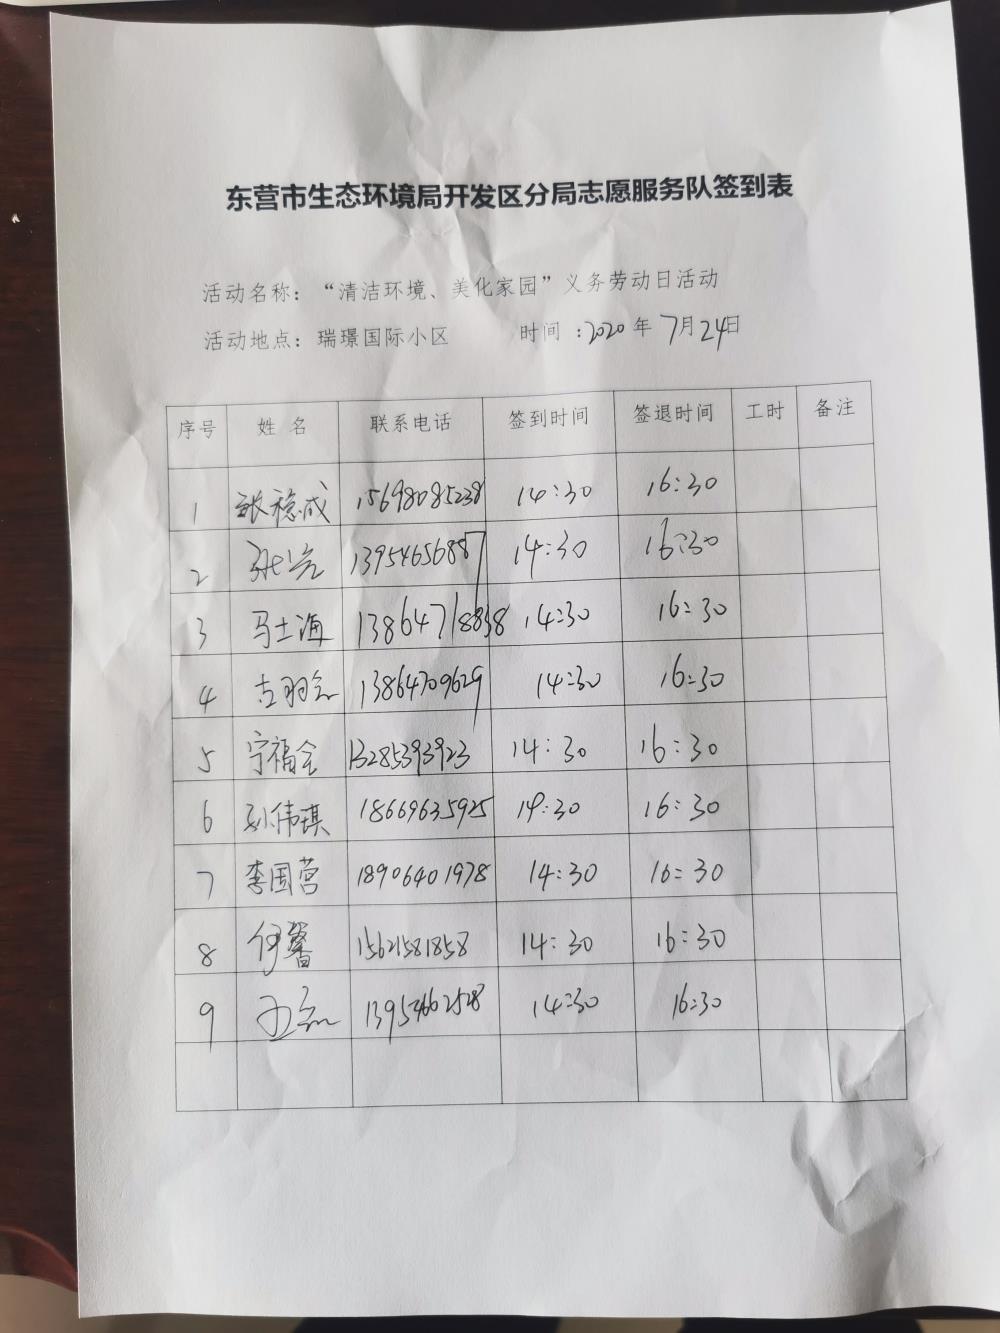 东营市生态环境局开发区分局志愿服务队签到表
活动名称：“清洁环境、美化家园”义务劳动日活动
活动地点：瑞璟国际小区 时间：2020年7月24日
序号 姓名 联系电话 签到时间 签退时间 工时 备注
1 张稳成 15698085238 14:30 16:30
2 13954656887 14:30 16:30
3 马士海 13864718838 14:30 16:30
4 13864709629 14:30 16:30
5 宁福全 13285393923 14:30 16:30
6 孙伟琪 18669635925 14:30 16:30
7 李国营 18906401978 14:30 16:30
8 伊馨 15621581858 14:30 16:30
9 14:30 16:30